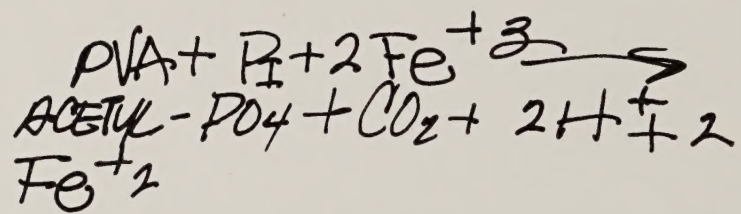 PVA + PI + 2 Fe+3 →
ACETYL - PO4 + CO2 + 2H+ + 2
Fe+2